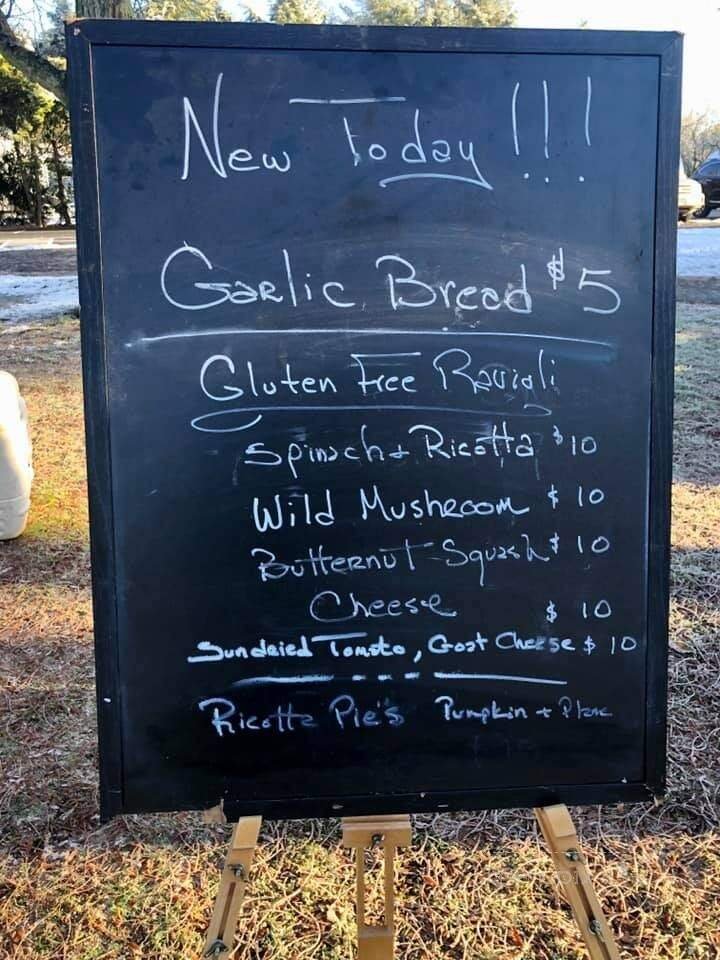 New Today !!!
Garlic Bread $5
Gluten Free Ravioli
Spinach + Ricotta $10
Wild Mushroom $10
Butternut Squash $10
Cheese $10
Sundried Tomato, Goat Cheese $10
Ricotta Pie's Pumpkin + Plane